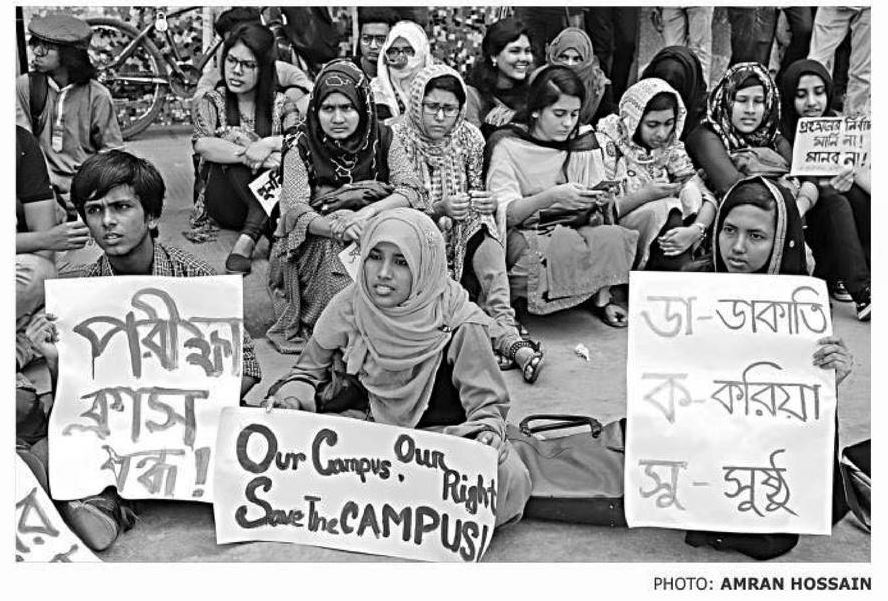 প্রহসনের
মানি না!
মানব না!
পরীক্ষা
ক্লাস
বন্ধ !
Our Campus, Our Right
Save The CAMPUS!
ডা-ডাকাতি
ক-করিয়া
সু-সুষ্ঠু
PHOTO: AMRAN HOSSAIN